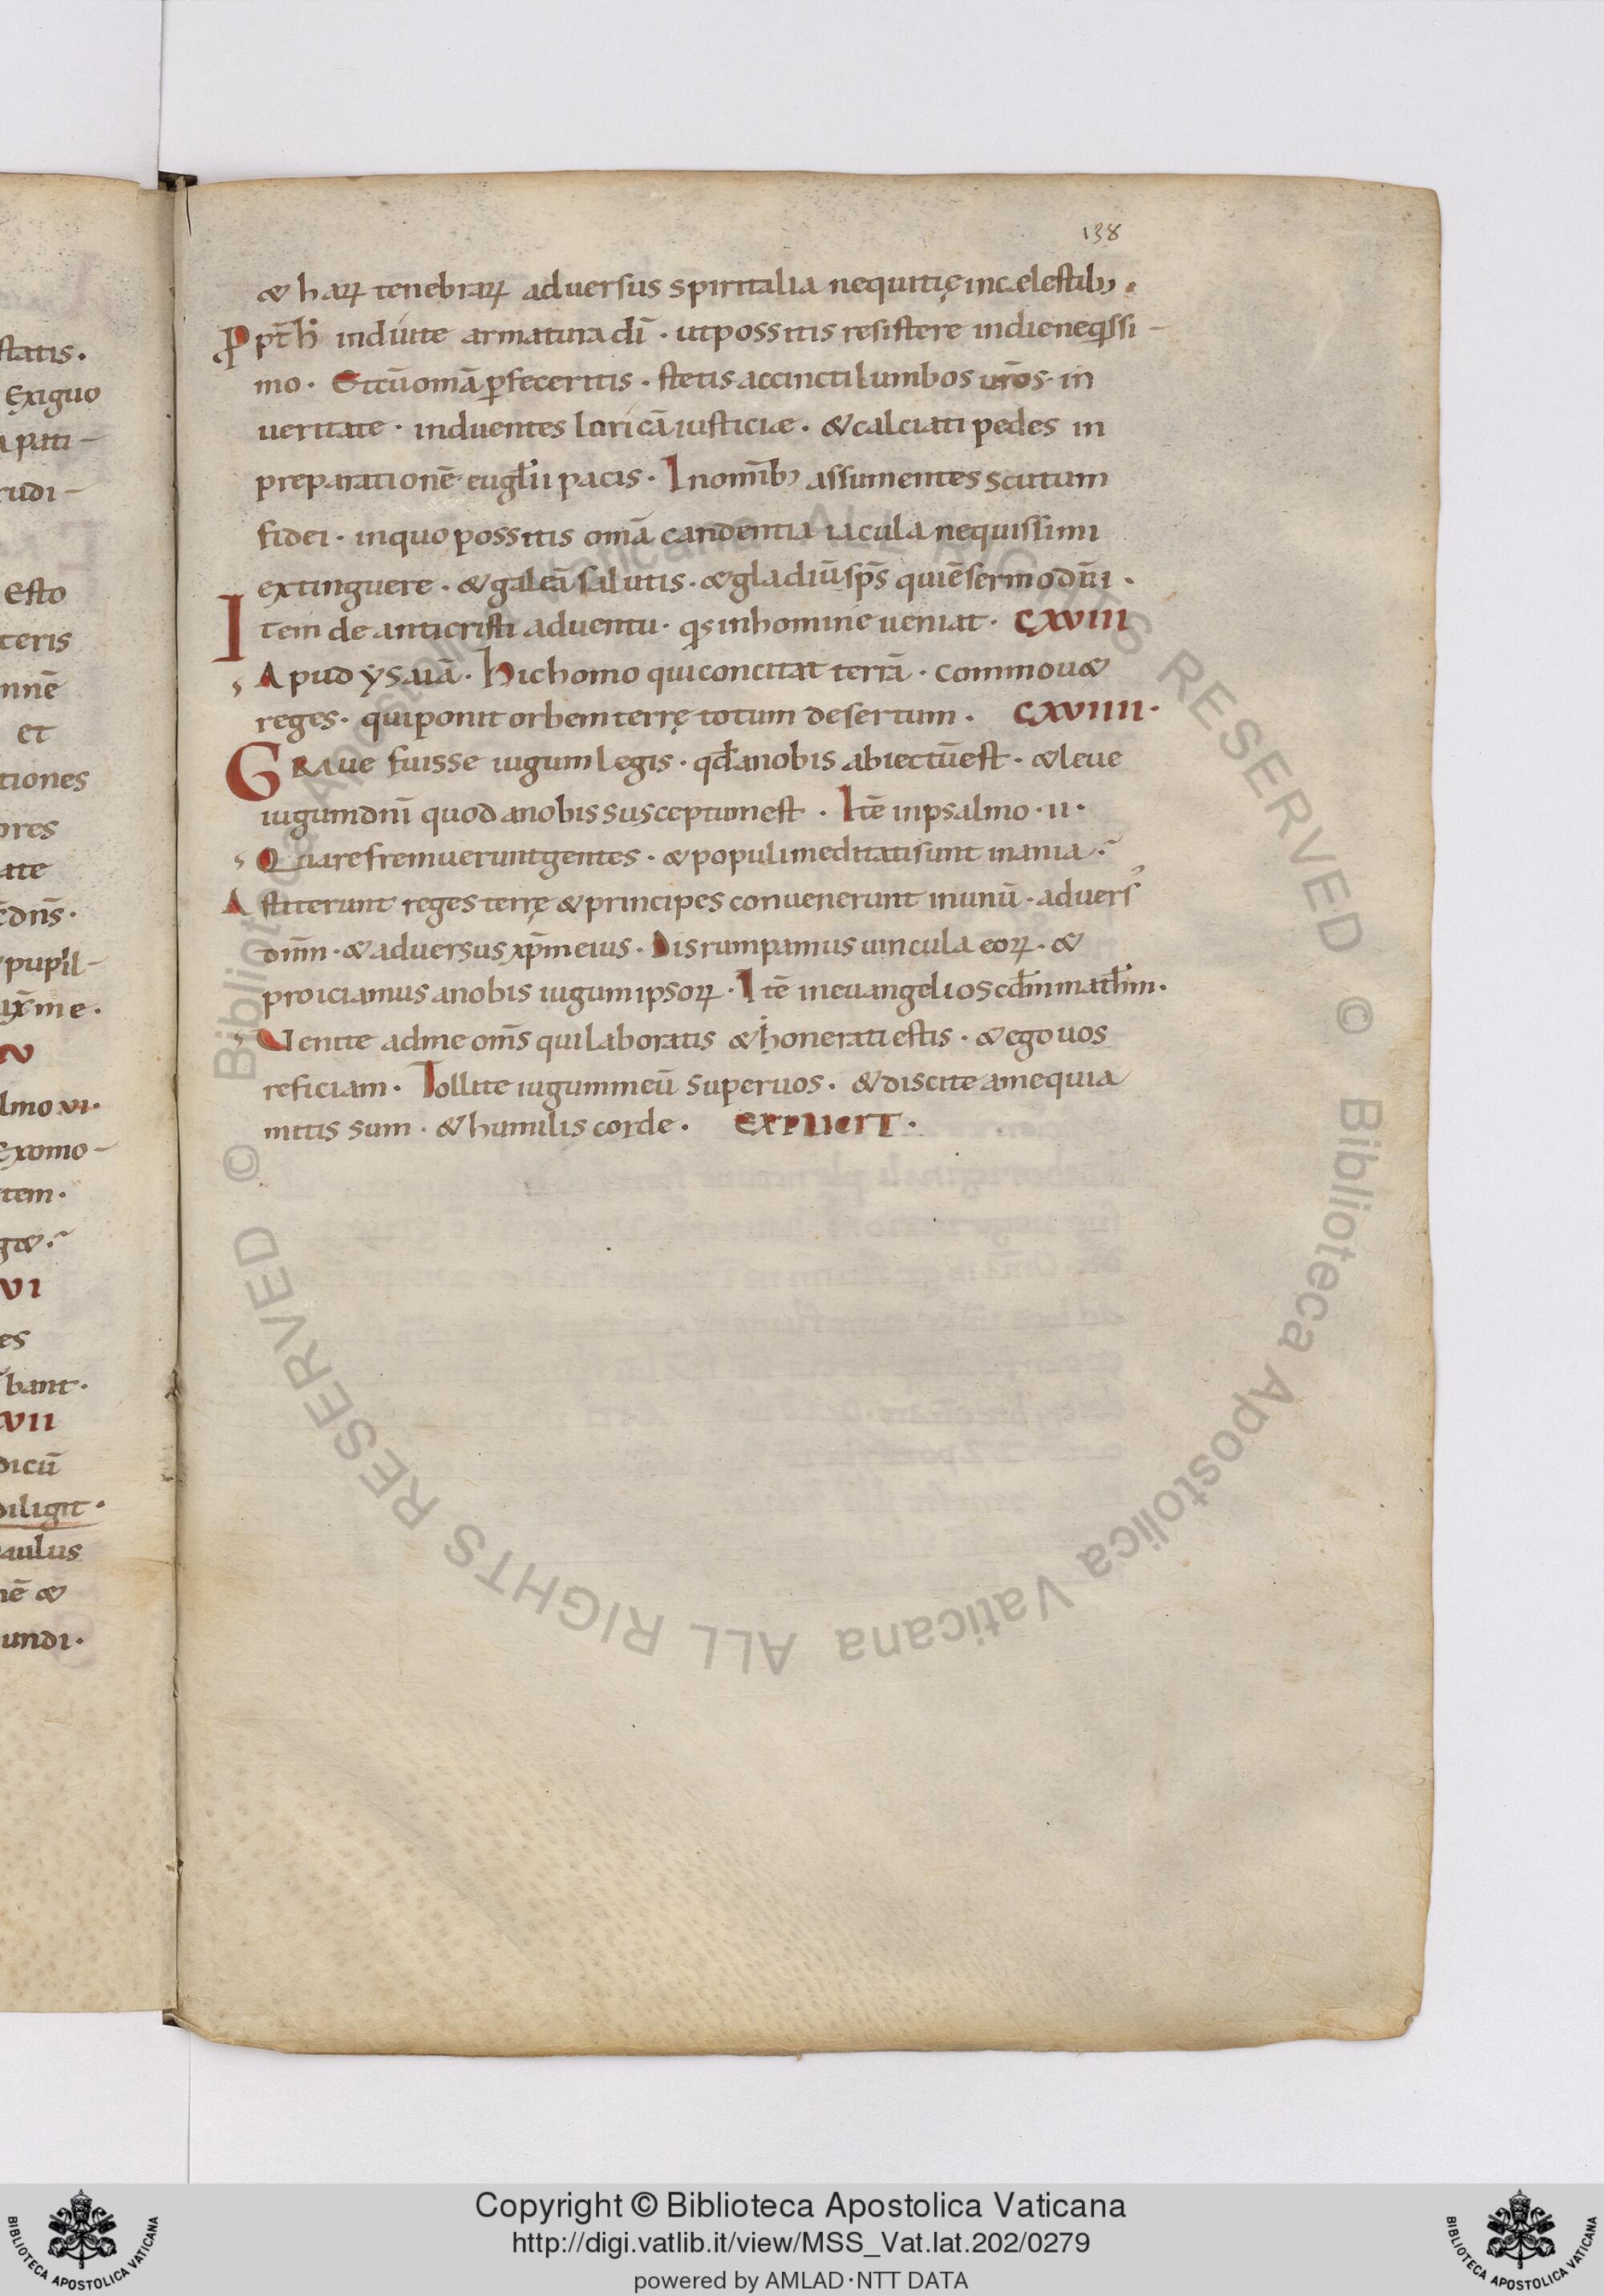 138
& harꝝ tenebrarꝝ adversus spiritalia nequitię incelestibꝫ.
Ppt̄h̄ induite armatura dī · utpossitis resistere indieneqͥssi-
mo · Etcūom̄aꝑfeceritis · stetis accincti lumbos ur̄os in
ueritate · induentes loricā iusticiæ · &calciati pedes in
preparationē eugl̄ii pacis · Inomībꝫ assumentes scutum
fidei · inquo possitis om̄a candentia iacula nequissimi
extinguere · &galeā salutis · &gladiūsp̄s quiēsermodn̄i ·
Item de anticristi aduentu · qͥsinhomine ueniat · CXVIII
Apud ysaiā · hichomo quiconcitat terrā · commou&
reges · quiponit orbem terrę totum desertum · CXVIIII ·
GRAue fuisse iugumlegis · qd̄anobis abiectūest · &leue
iugumdn̄i quod anobis susceptumest · Itē inpsalmo · II ·
Quarefremueruntgentes · &populimeditatisunt inania ·
Astiterunt reges terrę &principes convenerunt inunū · aduers᾿
dn̄m · &adversus xp̄meius · Disrumpamus uincula eorꝝ · &
proiciamus anobis iugumipsorꝝ · Itē ineuangelioscd̄mmath̄m ·
Uenite adme om̄s quilaboratis &honeratiestis · &ego uos
reficiam · Tollite iugummeū superuos · &discite amequia
mitis sum · &humilis corde · EXPLICIT ·
statis ·
Exiguo
pati-
rudi-
Esto
teris
nnē
et
tiones
ores
ate
dn̄s ·
pupil-
me ·
lmo vi ·
Exomo-
tem ·
g& ·
VI
es
bant ·
VII
dicū
diligit ·
aulus
nē &
undi ·
© Biblioteca Apostolica Vaticana ALL RIGHTS RESERVED
© Biblioteca Apostolica Vaticana ALL RIGHTS RESERVED
Copyright © Biblioteca Apostolica Vaticana
http://digi.vatlib.it/view/MSS_Vat.lat.202/0279
powered by AMLAD·NTT DATA
BIBLIOTECA APOSTOLICA VATICANA
BIBLIOTECA APOSTOLICA VATICANA